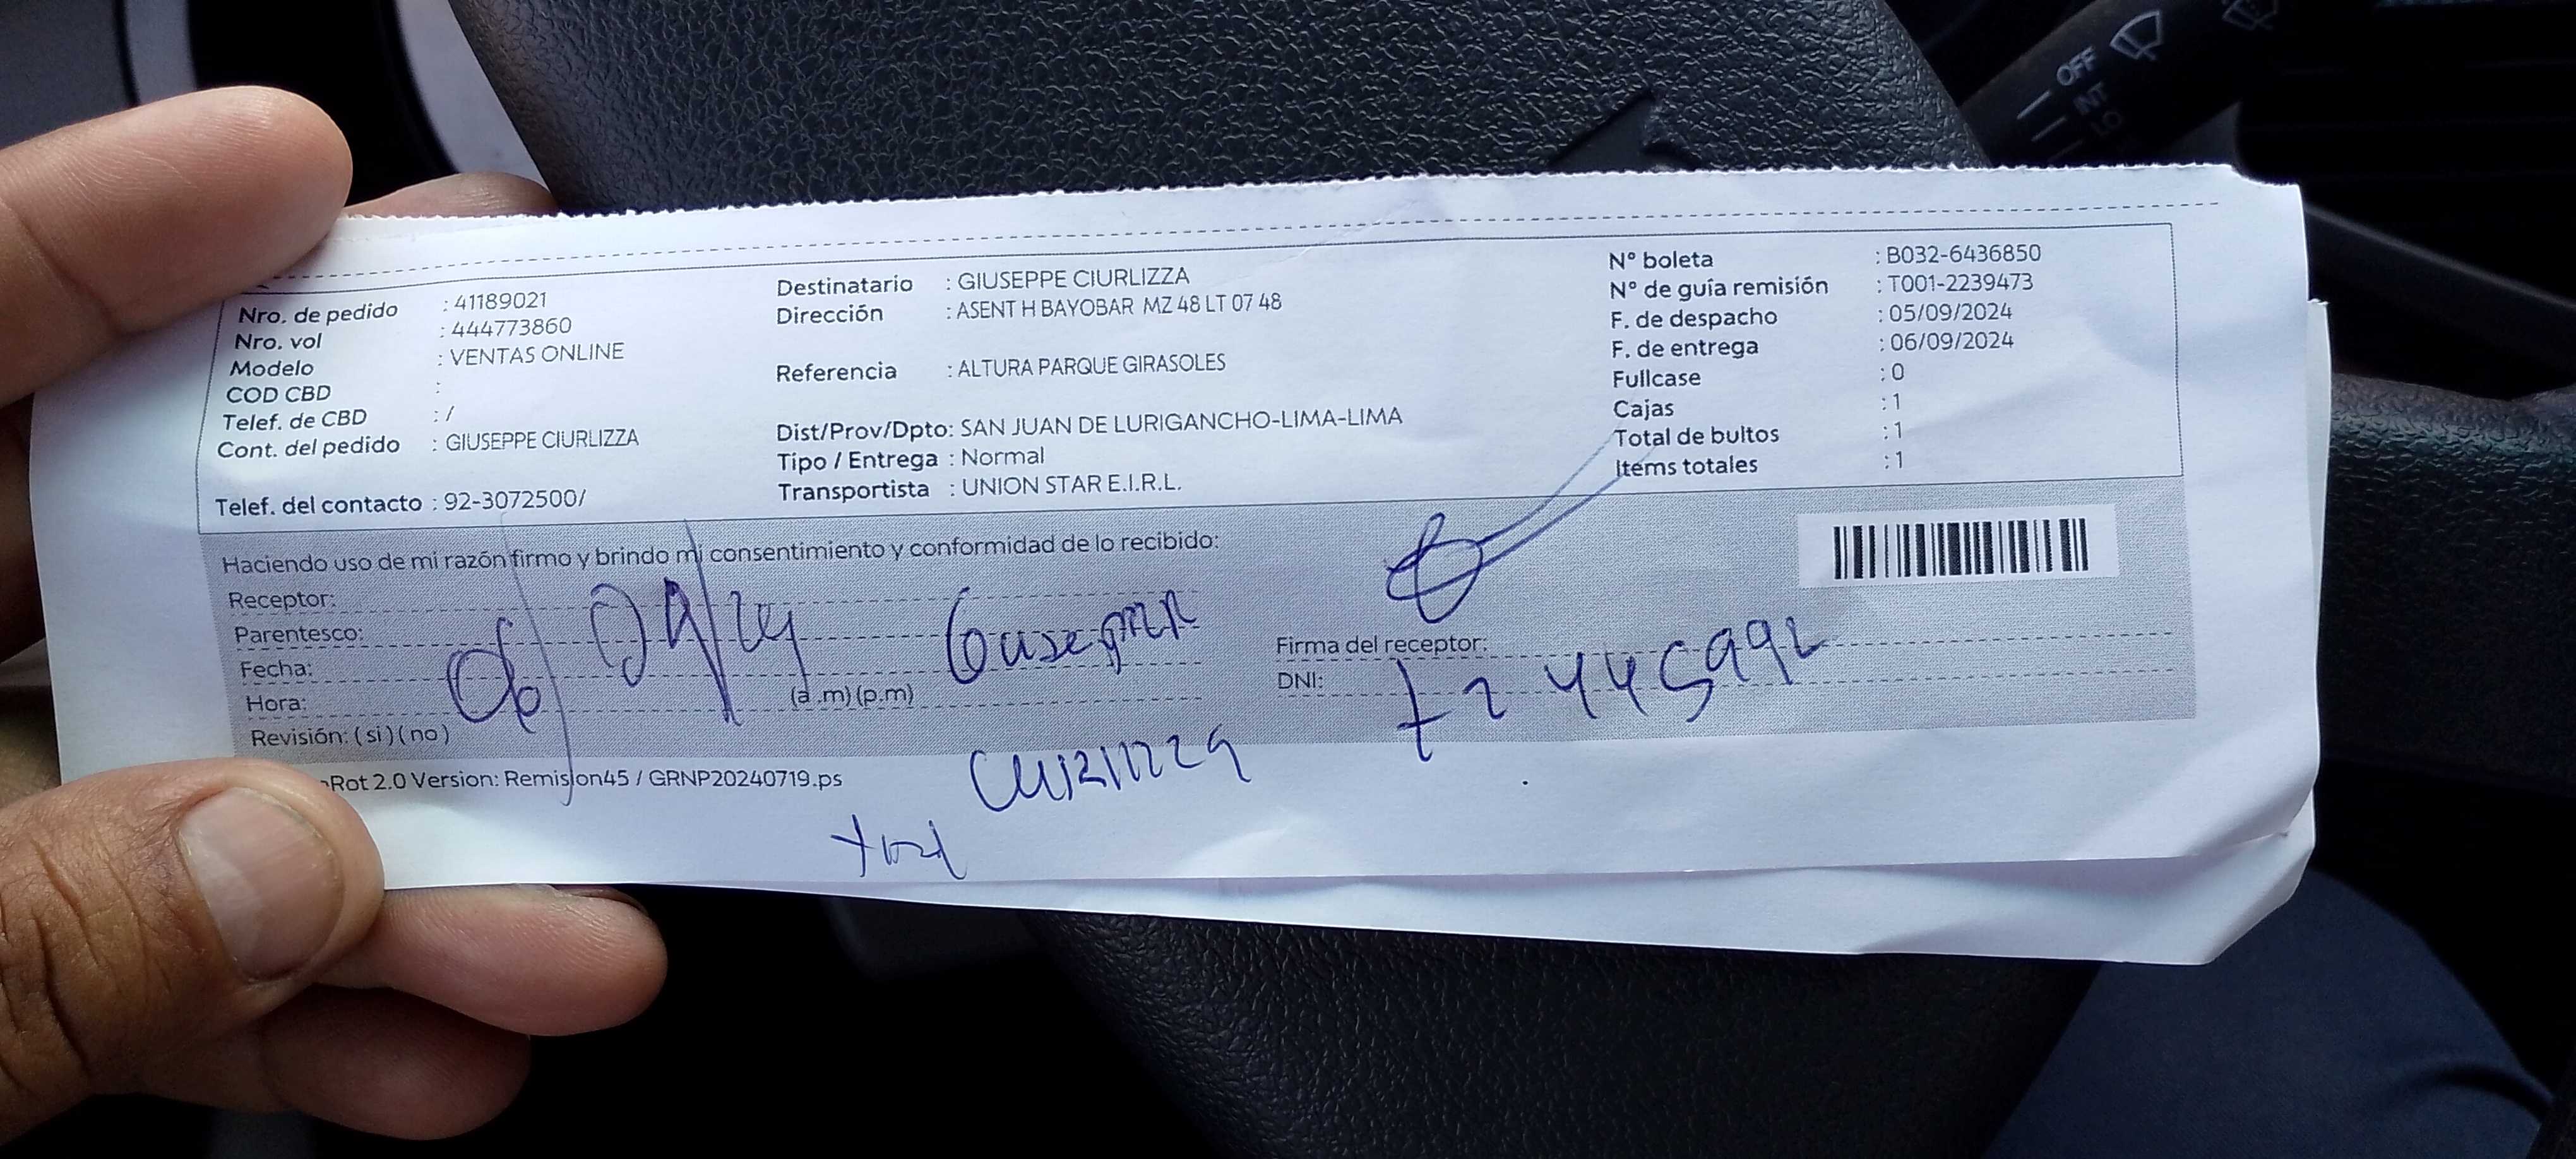 Nro. de pedido : 41189021
Nro. vol : 444773860
Modelo : VENTAS ONLINE
COD CBD :
Telef. de CBD : /
Cont. del pedido : GIUSEPPE CIURLIZZA
Telef. del contacto : 92-3072500/
Destinatario : GIUSEPPE CIURLIZZA
Dirección : ASENT H BAYOBAR MZ 48 LT 07 48
Referencia : ALTURA PARQUE GIRASOLES
Dist/Prov/Dpto: SAN JUAN DE LURIGANCHO-LIMA-LIMA
Tipo / Entrega : Normal
Transportista : UNION STAR E.I.R.L.
N° boleta : B032-6436850
N° de guía remisión : T001-2239473
F. de despacho : 05/09/2024
F. de entrega : 06/09/2024
Fullcase : 0
Cajas : 1
Total de bultos : 1
Items totales : 1
Haciendo uso de mi razón firmo y brindo mi consentimiento y conformidad de lo recibido:
Receptor:
Parentesco:
Fecha:
06/09/24
Hora: (a .m) (p.m)
Revisión: ( si ) ( no )
Firma del receptor:
DNI:
Rot 2.0 Version: Remision45 / GRNP20240719.ps
OFF
INT
LO